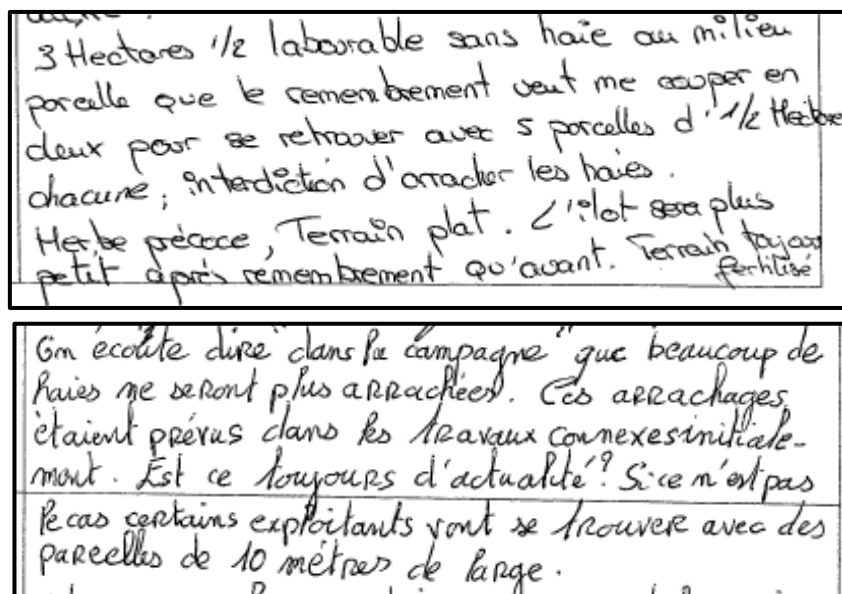 3 Hectares 1/2 labourable sans haie au milieu
parcelle que le remembrement veut me couper en
deux pour se retrouver avec 5 parcelles d'1/2 Hectare
chacune ; interdiction d'arracher les haies.
Herbe précoce, Terrain plat. L'ilot sera plus
petit après remembrement qu'avant. Terrain toujours
fertilisé
On écoute dire "dans la campagne" que beaucoup de
haies ne seront plus arrachées. Ces arrachages
étaient prévus dans les travaux connexes initiale-
ment. Est ce toujours d'actualité? Si ce n'est pas
le cas certains exploitants vont se trouver avec des
parcelles de 10 mètres de large.